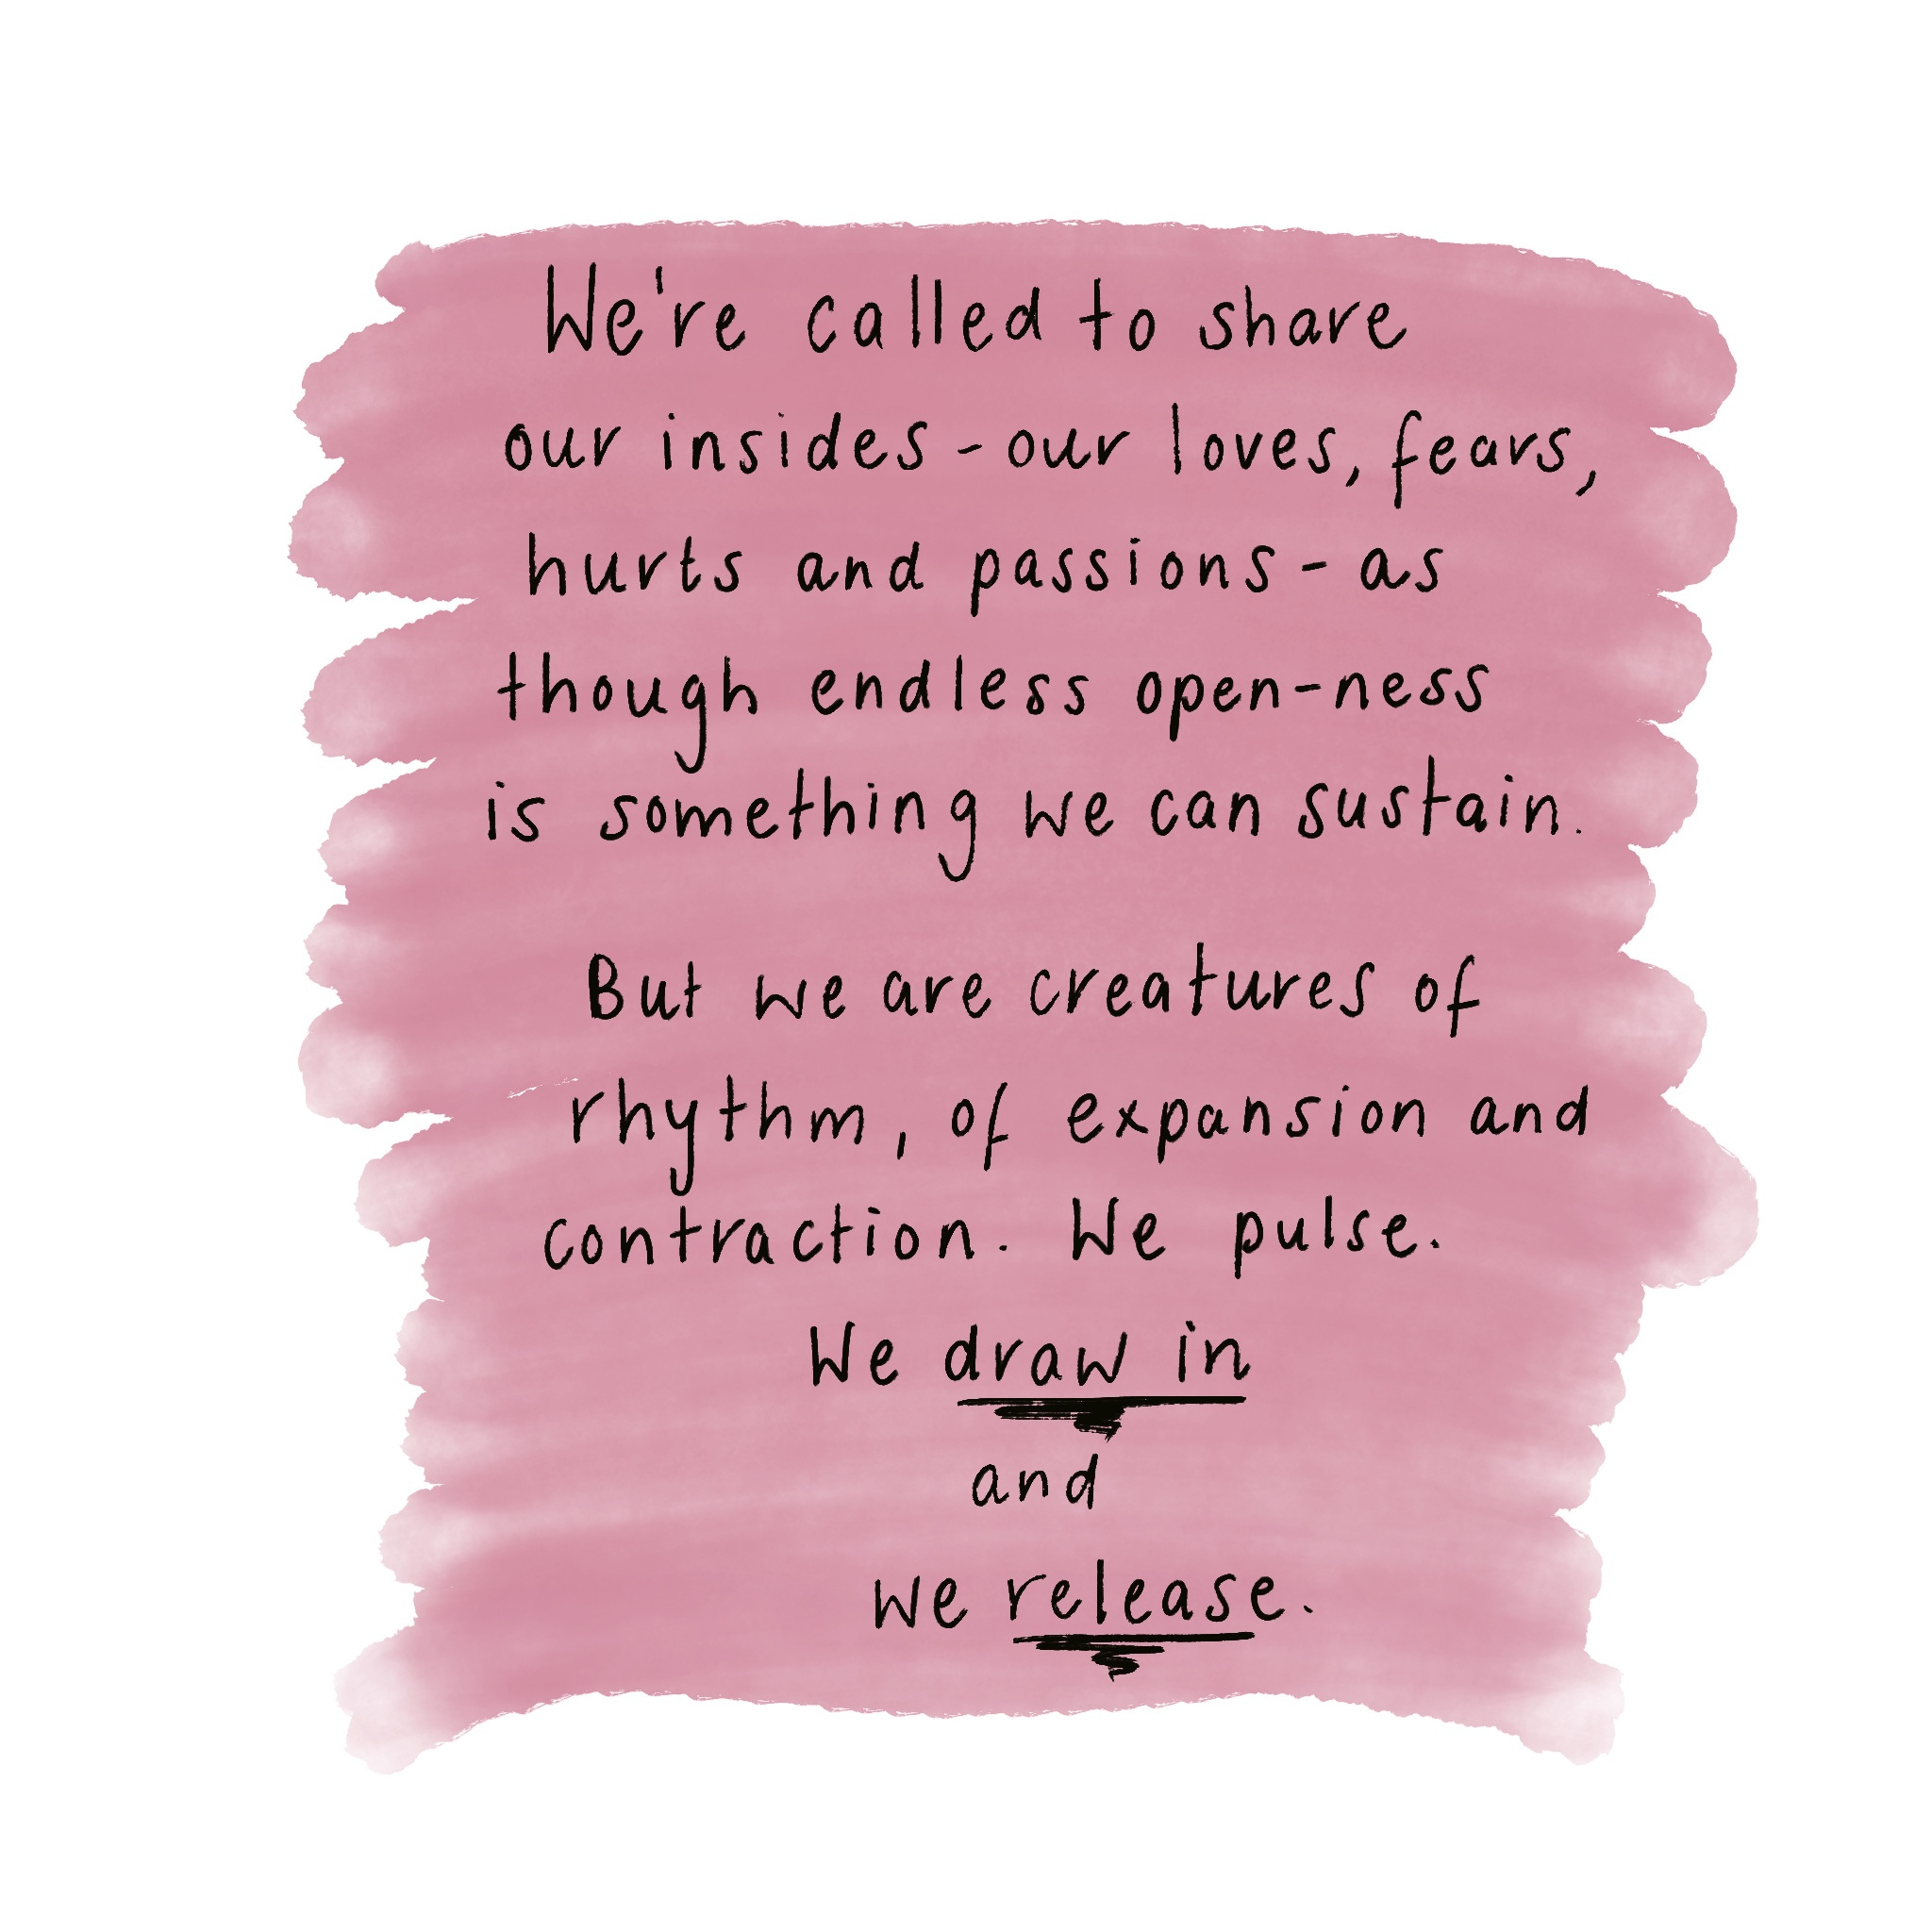 We're called to share
our insides - our loves, fears,
hurts and passions - as
though endless open-ness
is something we can sustain.
But we are creatures of
rhythm, of expansion and
contraction. We pulse.
We draw in
and
we release.